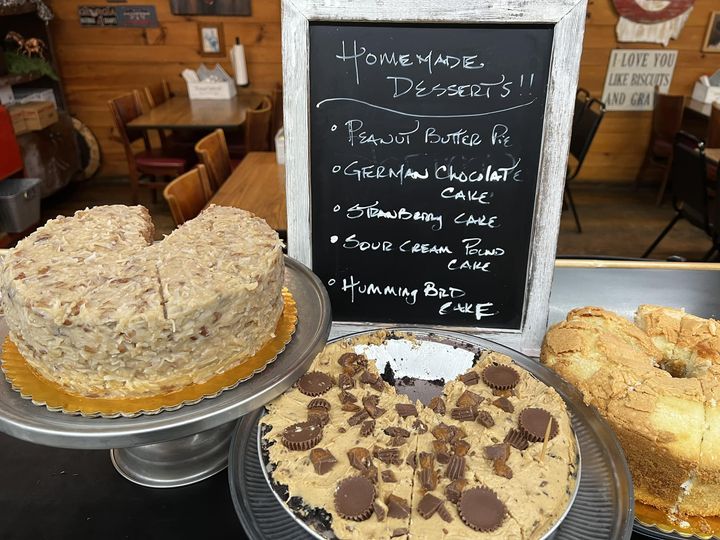 Homemade
Desserts!!
• Peanut Butter Pie
• German Chocolate
Cake
• Strawberry Cake
• Sour Cream Pound
Cake
• Humming Bird
Cake
I LOVE YOU
LIKE BISCUITS
AND GRA